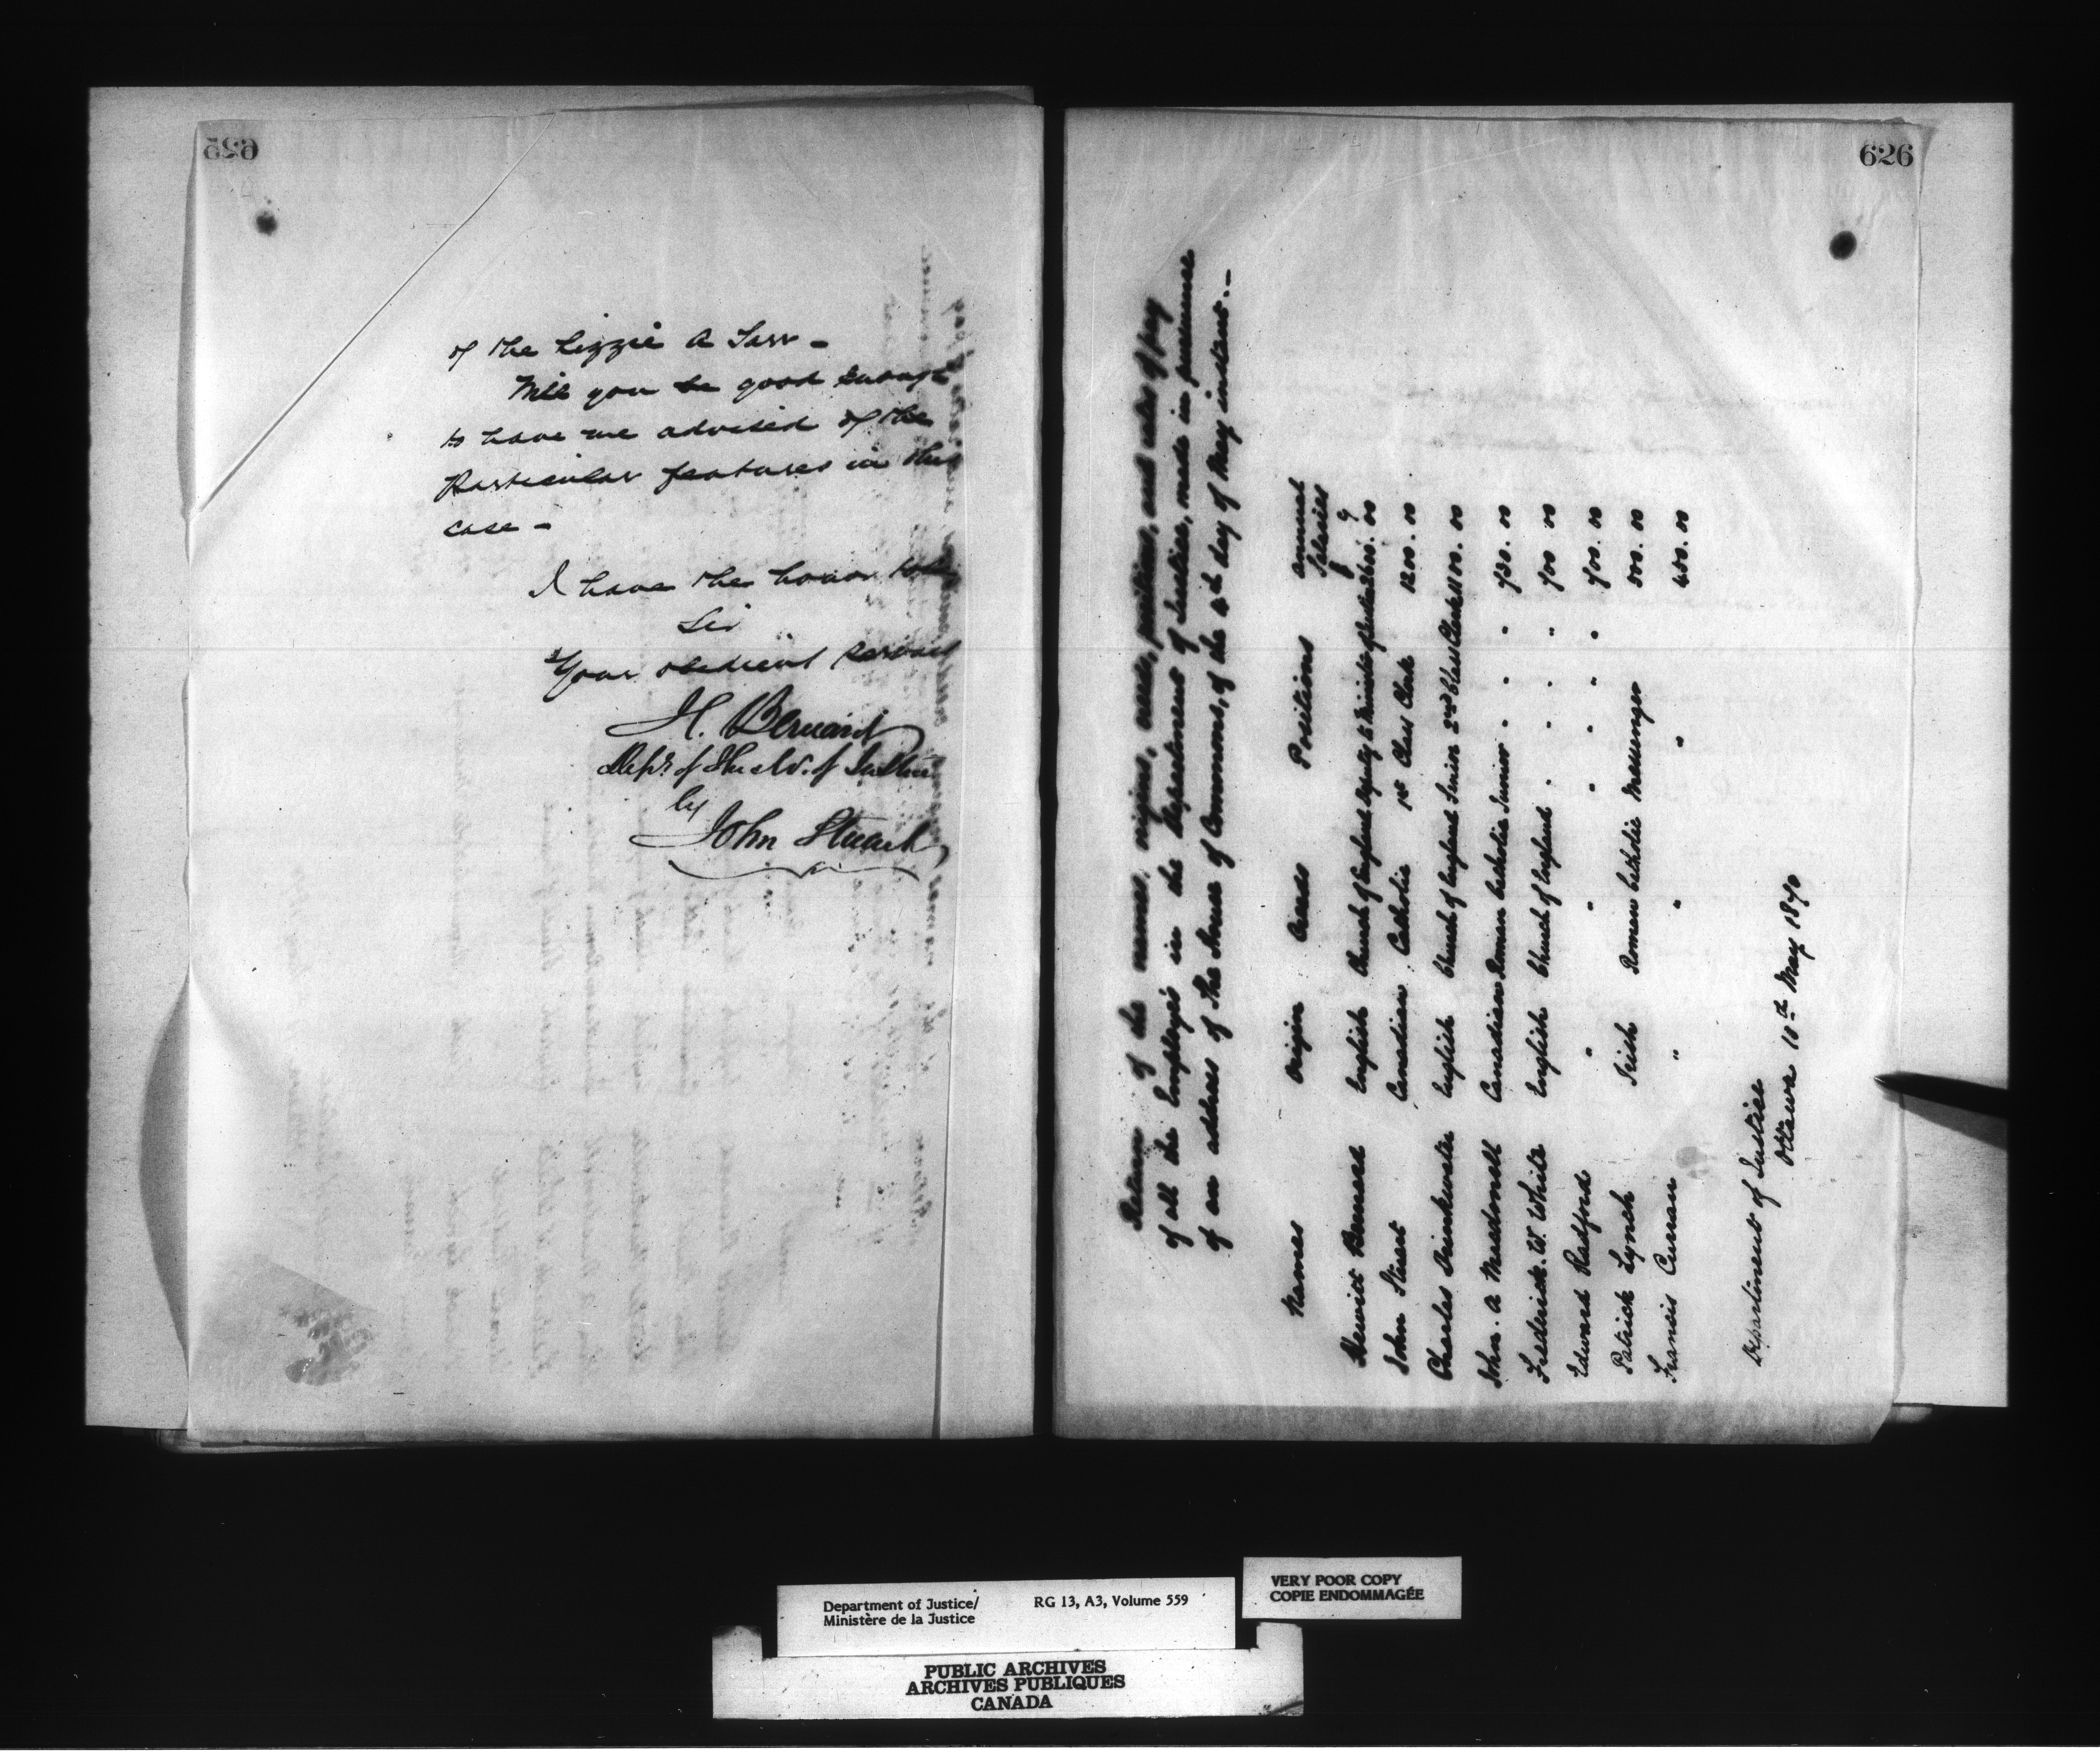 625
of the Lizzie A Tarr -
Will you be good enough
to have me advised of the
Particular features in this
case -
I have the honor to be
Sir
Your obedient servant
H. Bernard
Dep. of The Min. of Justice
by
John Stuart
626
Return of the names, origins, creeds, positions, and rates of pay
of all the Employés in the Department of Justice, made in pursuance
of an address of the House of Commons, of the 4th day of May instant. -
Names Origin Creeds Positions Annual
Salaries
Hewitt Bernard English Church of England Deputy to Minister of Justice 2600. 00
John Stuart Canadian Catholic 1st Class Clerk 1200. 00
Charles Drinkwater English Church of England Senior 2nd Class Clerk 1100. 00
John. A Macdonell Canadian Roman Catholic Junior " " " 730. 00
Frederick. W. White English Church of England " " " " 700 00
Edward Radford " " " " " " 700. 00
Patrick Lynch Irish Roman Catholic Messenger 500. 00
Francis Curran " " " 400. 00
Department of Justice
Ottawa 10th May 1870
Department of Justice/ RG 13, A3, Volume 559
Ministère de la Justice
VERY POOR COPY
COPIE ENDOMMAGÉE
PUBLIC ARCHIVES
ARCHIVES PUBLIQUES
CANADA